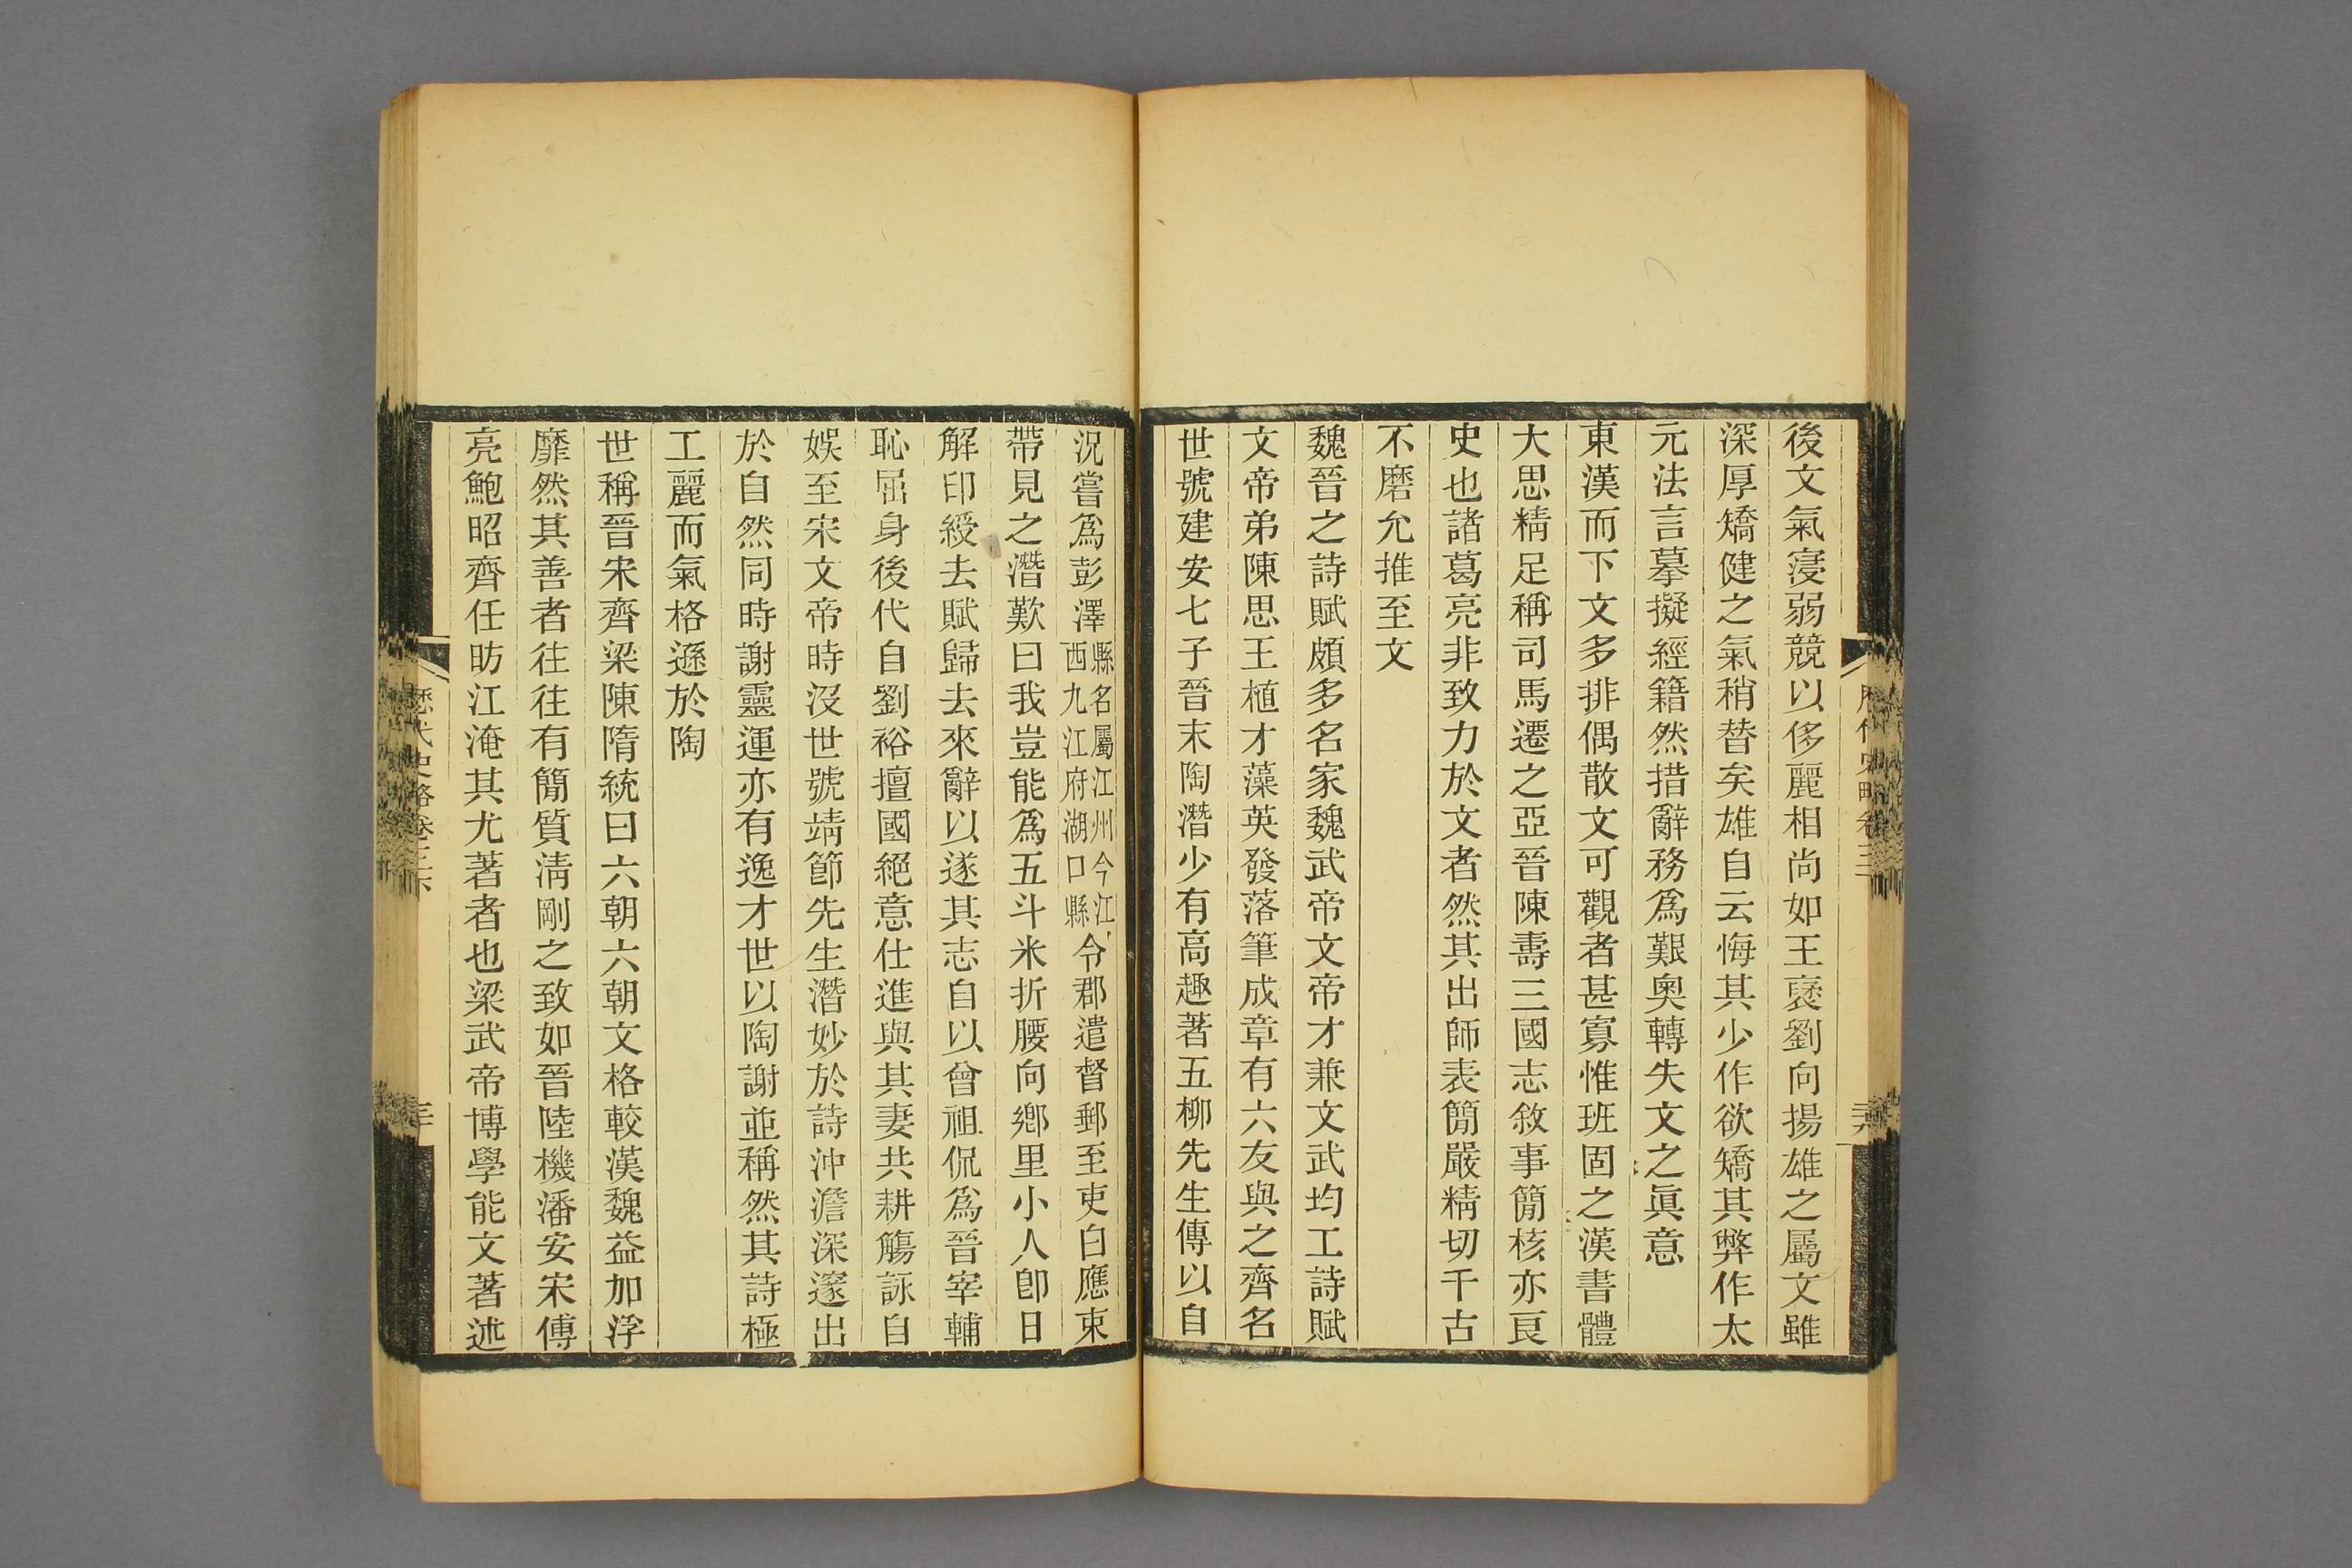 後文氣寖弱競以侈麗相尚如王襃劉向揚雄之屬文雖
深厚矯健之氣稍替矣雄自云悔其少作欲矯其弊作太
元法言摹擬經籍然措辭務爲艱奧轉失文之眞意
東漢而下文多排偶散文可觀者甚寡惟班固之漢書體
大思精足稱司馬遷之亞晉陳壽三國志敘事簡核亦良
史也諸葛亮非致力於文者然其出師表簡嚴精切千古
不磨允推至文
魏晉之詩賦頗多名家魏武帝文帝才兼文武均工詩賦
文帝弟陳思王植才藻英發落筆成章有六友與之齊名
世號建安七子晉末陶潛少有高趣著五柳先生傳以自
況嘗爲彭澤縣名屬江州今江西九江府湖口縣令郡遣督郵至吏白應束
帶見之潛歎曰我豈能爲五斗米折腰向鄉里小人卽日
解印綬去賦歸去來辭以遂其志自以曾祖侃爲晉宰輔
恥屈身後代自劉裕擅國絕意仕進與其妻共耕觴詠自
娛至宋文帝時沒世號靖節先生潛妙於詩沖澹深邃出
於自然同時謝靈運亦有逸才世以陶謝並稱然其詩極
工麗而氣格遜於陶
世稱晉宋齊梁陳隋統曰六朝六朝文格較漢魏益加浮
靡然其善者往往有簡質淸剛之致如晉陸機潘安宋傅
亮鮑昭齊任昉江淹其尤著者也梁武帝博學能文著述
歷代史略卷三下